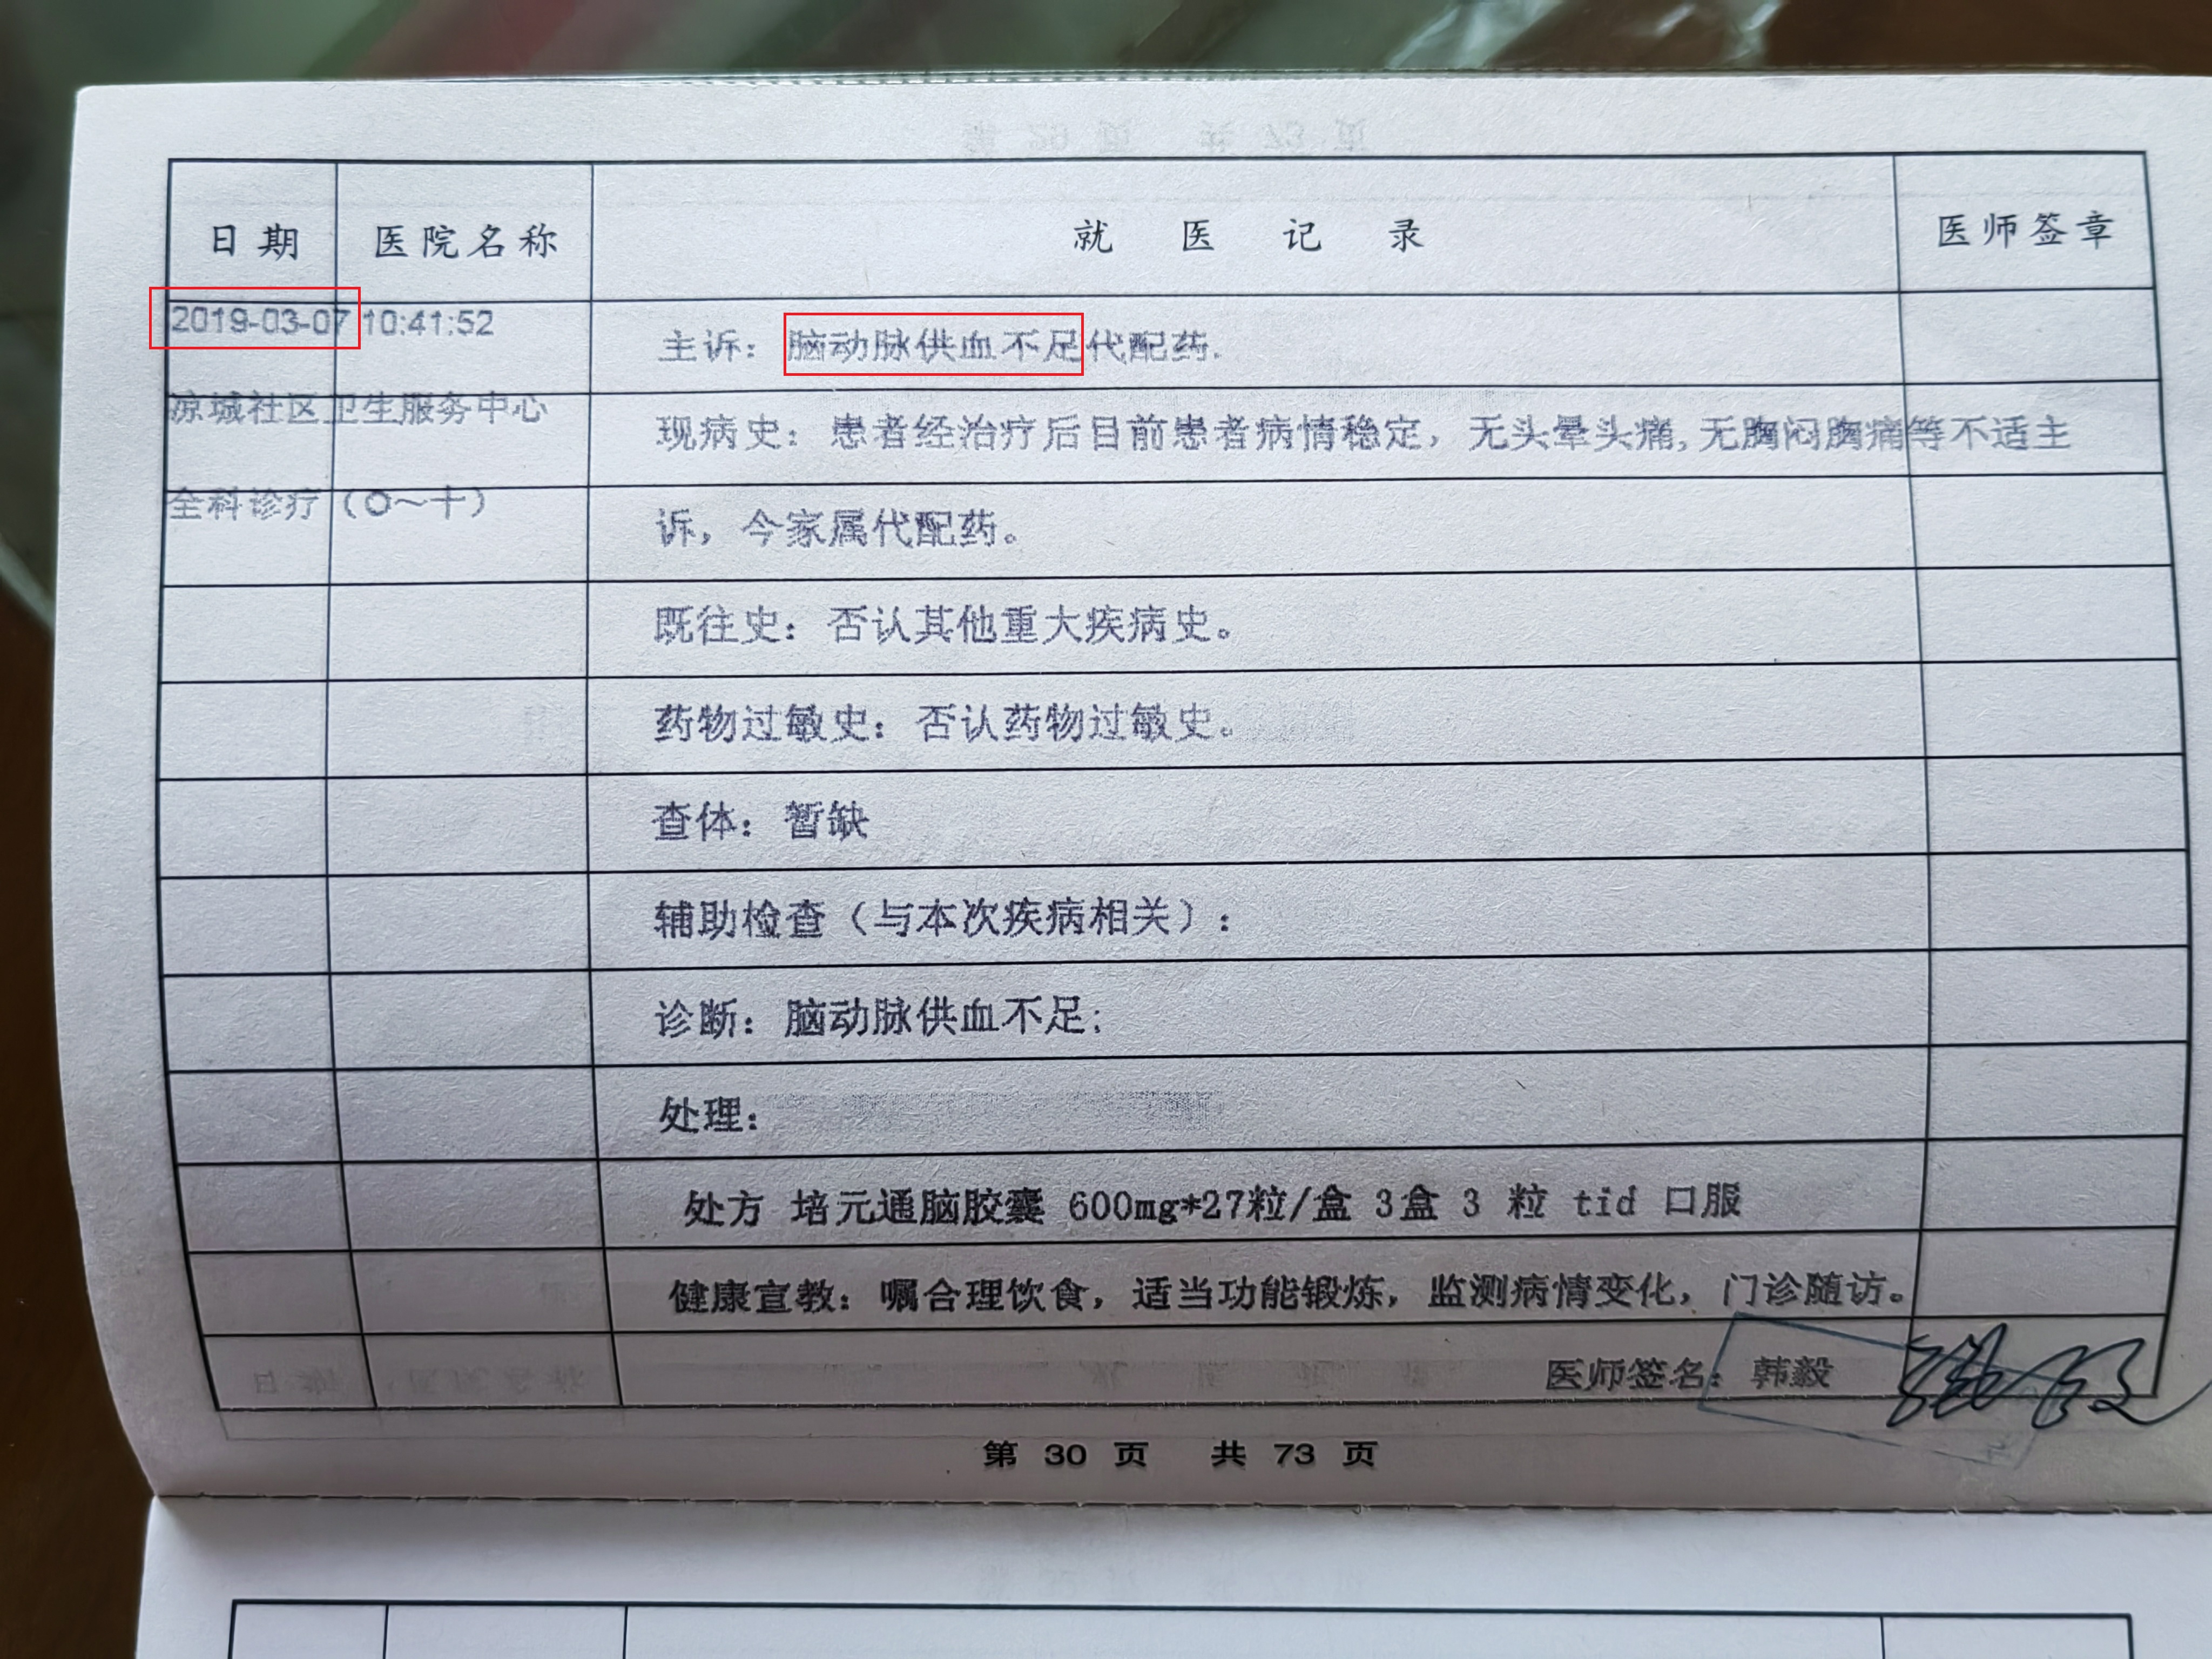 日期 医院名称 就医记录 医师签章
2019-03-07 10:41:52
凉城社区卫生服务中心
全科诊疗（O～十）
主诉：脑动脉供血不足代配药.
现病史：患者经治疗后目前患者病情稳定，无头晕头痛,无胸闷胸痛等不适主
诉，今家属代配药。
既往史：否认其他重大疾病史。
药物过敏史：否认药物过敏史。
查体：暂缺
辅助检查（与本次疾病相关）：
诊断：脑动脉供血不足;
处理：
处方 培元通脑胶囊 600mg*27粒/盒 3盒 3 粒 tid 口服
健康宣教：嘱合理饮食，适当功能锻炼，监测病情变化，门诊随访。
医师签名：韩毅
第 30 页 共 73 页